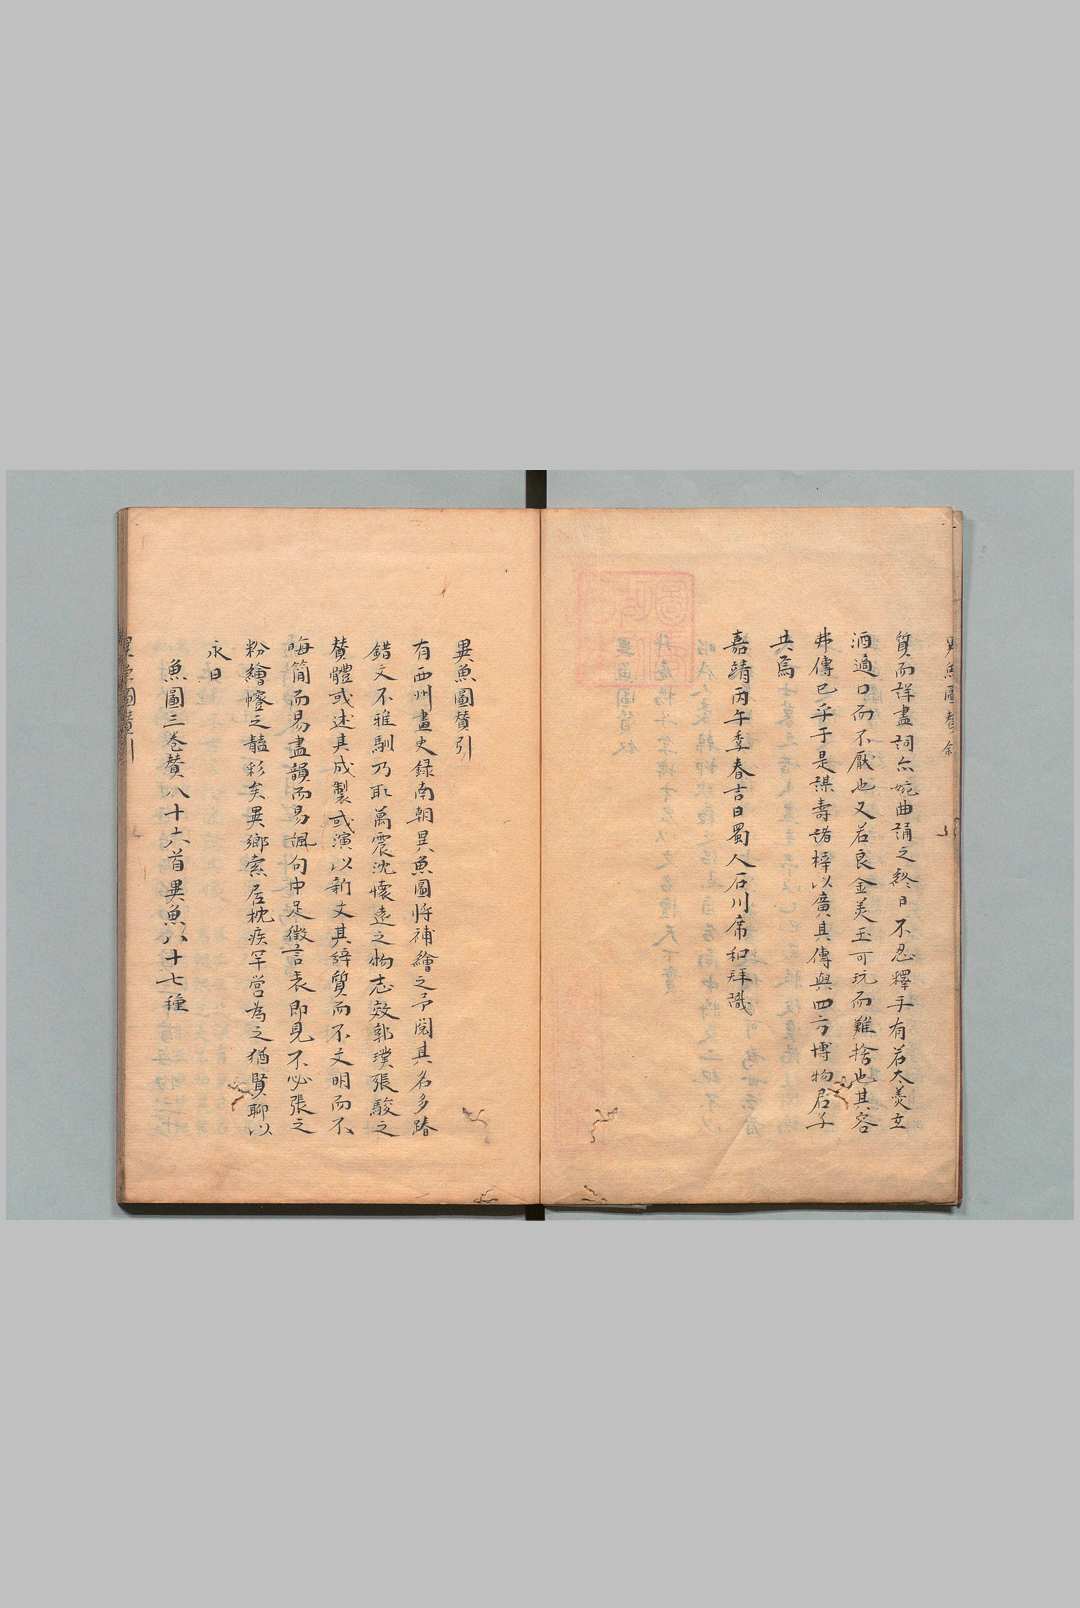 異魚圖贊叙
質而詳盡詞亦婉曲誦之終日不忍釋手有若太羮玄
酒適口而不厭也又若良金美玉可玩而難捨也其容
弗傳已乎于是謀壽諸梓以廣其傳與四方博物君子
共焉
嘉靖丙午季春吉日蜀人石川席和拜識
異魚圖贊引
有西州畫史録南朝異魚圖將補繪之予閲其名多踳
錯文不雅馴乃取萬震沈懷遠之物志效郭璞張駿之
贊體或述其成製或演以新文其辭質而不文明而不
晦簡而易盡韻而易諷句中足徵言表即見不必張之
粉繪之豔彩矣異鄉索居枕疾罕營為之猶賢聊以
永日
魚圖三卷贊八十六首異魚八十七種
異魚圖贊引